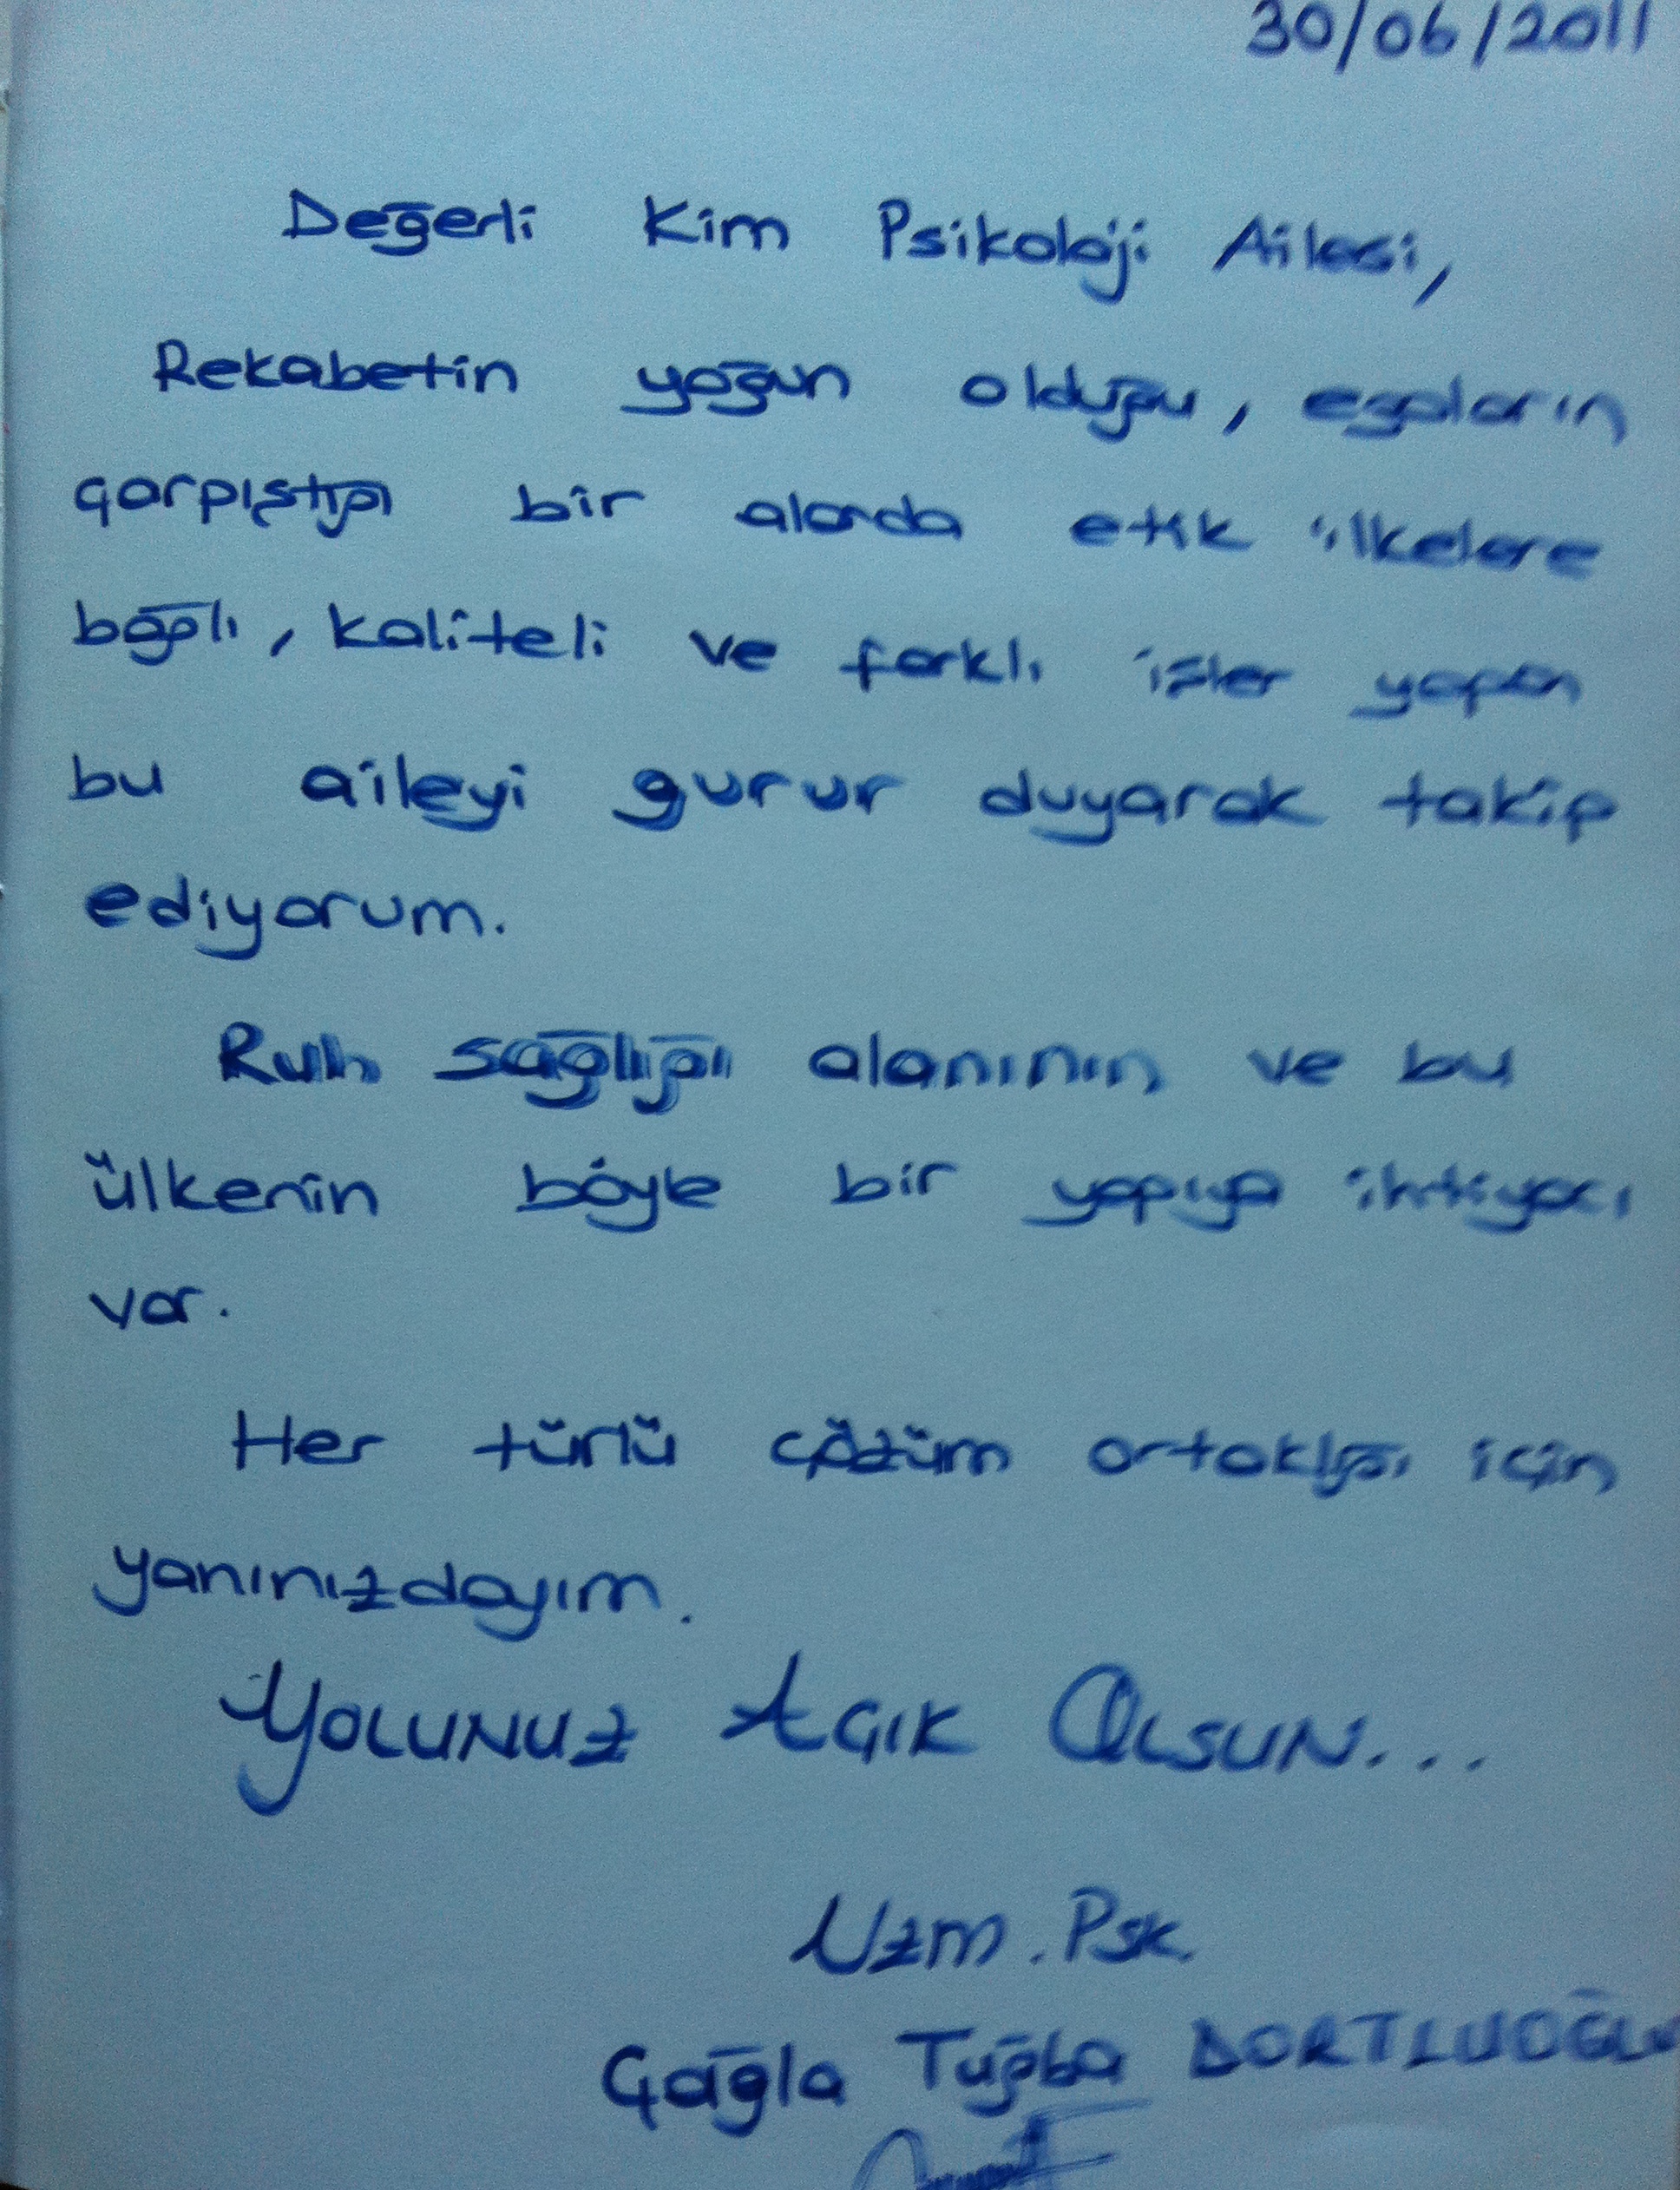 30/06/2011
Değerli Kim Psikoloji Ailesi,
Rekabetin yoğun olduğu, egoların
çarpıştığı bir alanda etik ilkelere
bağlı, kaliteli ve farklı işler yapan
bu aileyi gurur duyarak takip
ediyorum.
Ruh sağlığı alanının ve bu
ülkenin böyle bir yapıya ihtiyacı
var.
Her türlü çözüm ortaklığı için
yanınızdayım.
YOLUNUZ AÇIK OLSUN...
Uzm. Psk.
Çağla Tuğba DORTLUOĞLU